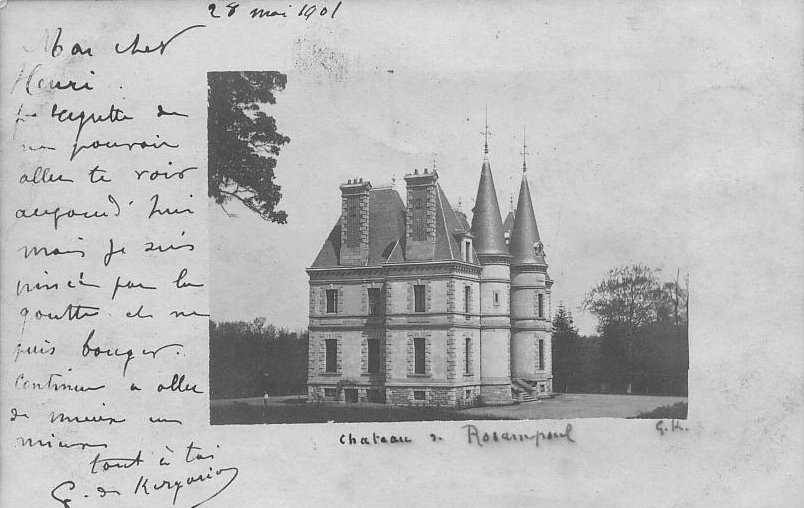 28 mai 1901
Mon cher
Henri.
je regrette de
ne pouvoir
aller te voir
aujourd'hui
mais je suis
pincé par la
goutte et ne
puis bouger.
Continue à aller
de mieux en
mieux
tout à toi
G. de Kergariou
Chateau de Rosampoul
G. K.